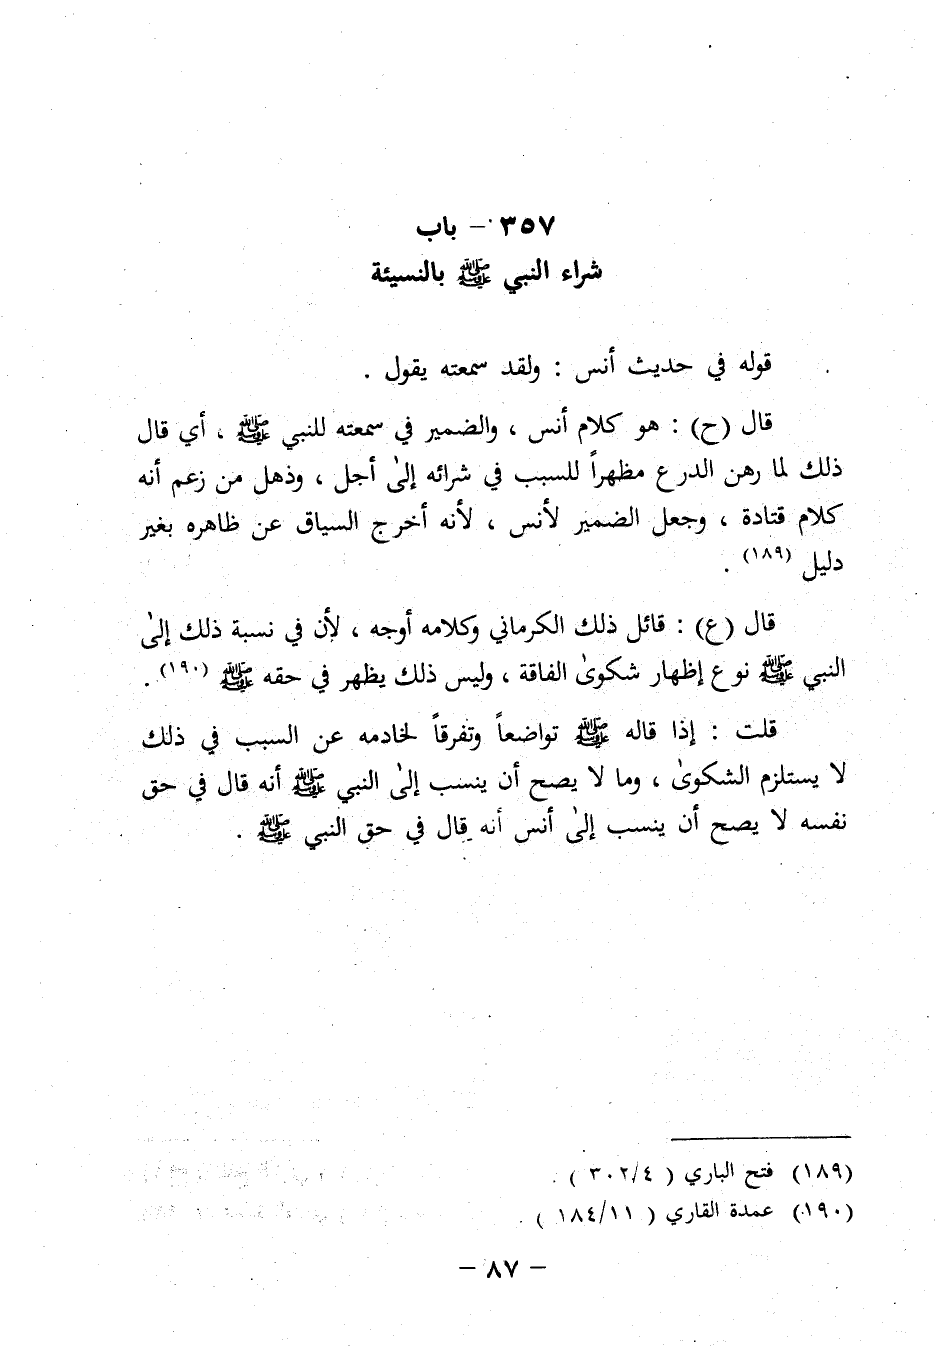 ٣٥٧ - باب
شراء النبي ﷺ بالنسيئة
قوله في حديث أنس : ولقد سمعته يقول .
قال (ح) : هو كلام أنس ، والضمير في سمعته للنبي ﷺ ، أي قال
ذلك لما رهن الدرع مظهراً للسبب في شرائه إلىٰ أجل ، وذهل من زعم أنه
كلام قتادة ، وجعل الضمير لأنس ، لأنه أخرج السياق عن ظاهره بغير
دليل (١٨٩) .
قال (ع) : قائل ذلك الكرماني وكلامه أوجه ، لأن في نسبة ذلك إلىٰ
النبي ﷺ نوع إظهار شكوىٰ الفاقة ، وليس ذلك يظهر في حقه ﷺ (١٩٠) .
قلت : إذا قاله ﷺ تواضعاً وتفرقاً لخادمه عن السبب في ذلك
لا يستلزم الشكوىٰ ، وما لا يصح أن ينسب إلىٰ النبي ﷺ أنه قال في حق
نفسه لا يصح أن ينسب إلىٰ أنس أنه قال في حق النبي ﷺ .
(١٨٩) فتح الباري ( ٣٠٢/٤ ) .
(١٩٠) عمدة القاري ( ١٨٤/١١ ) .
- ٨٧ -